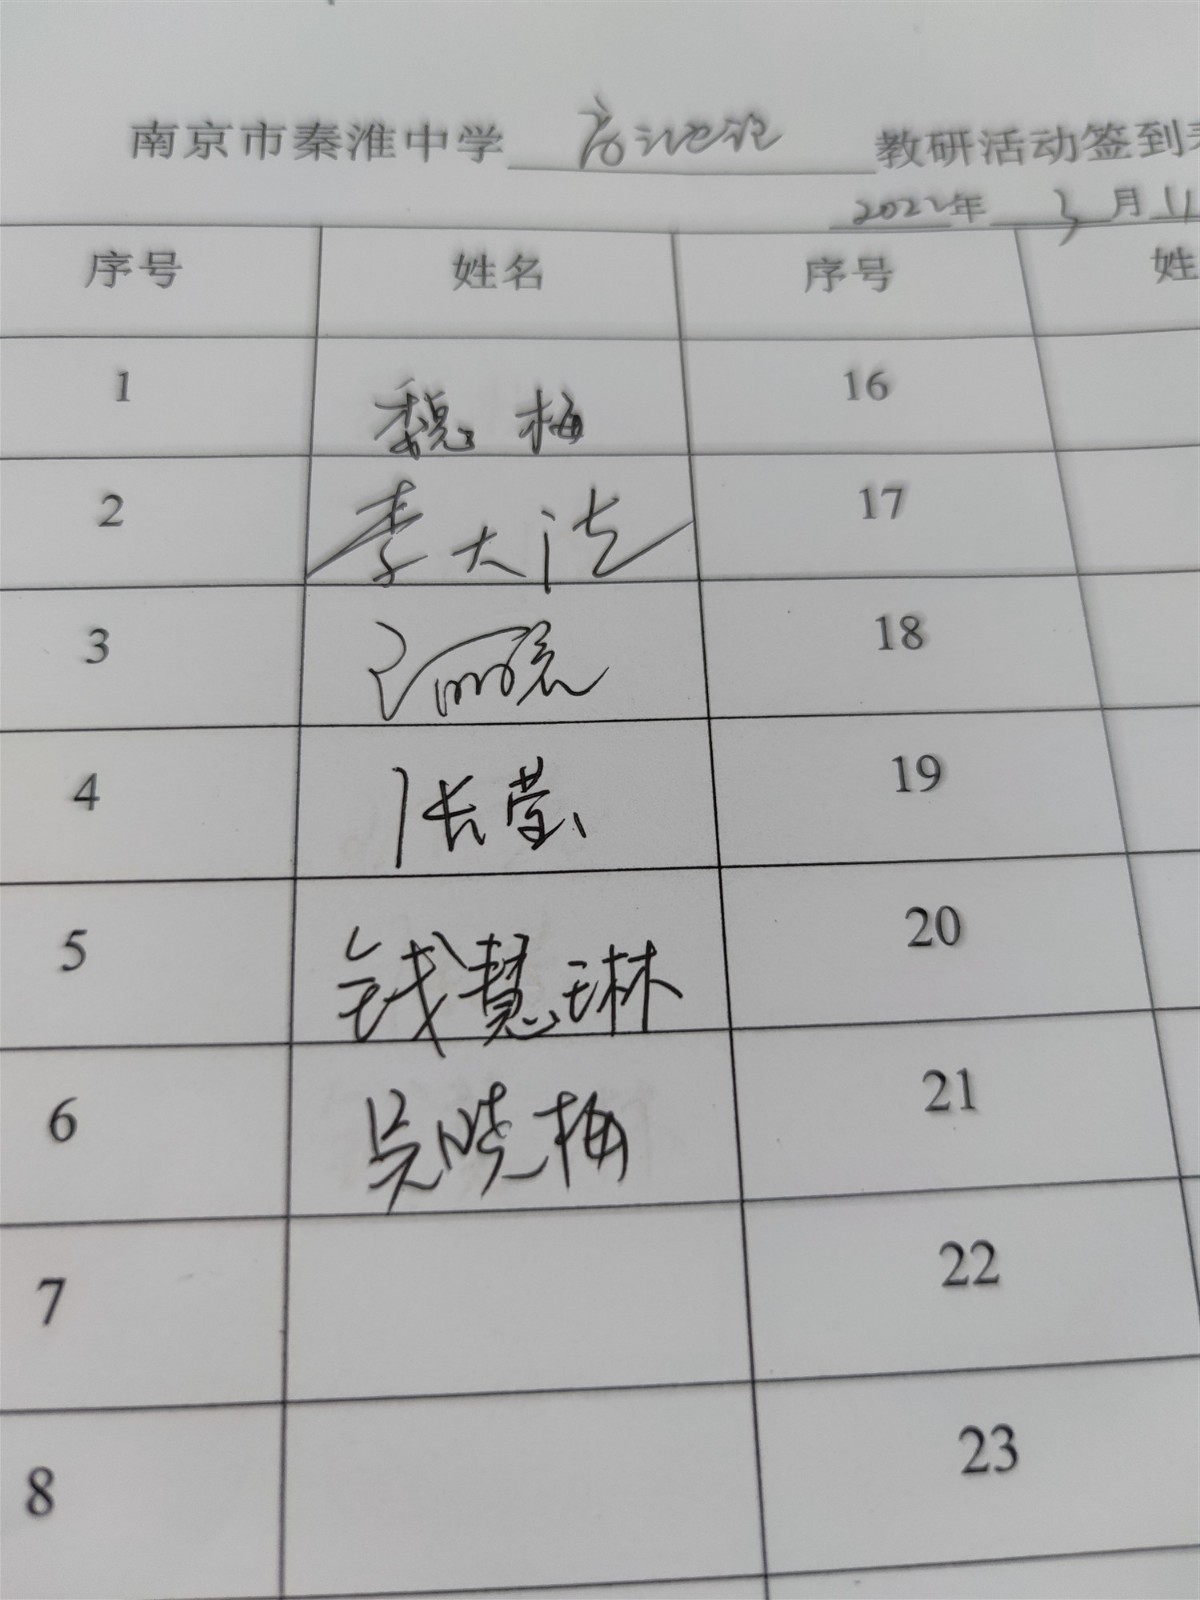 南京市秦淮中学 高一地理 教研活动签到
2022年 3 月 11
序号 姓名 序号 姓
1 魏梅 16
2 李大法 17
3 18
4 张莹 19
5 钱慧琳 20
6 吴晓梅 21
7 22
8 23